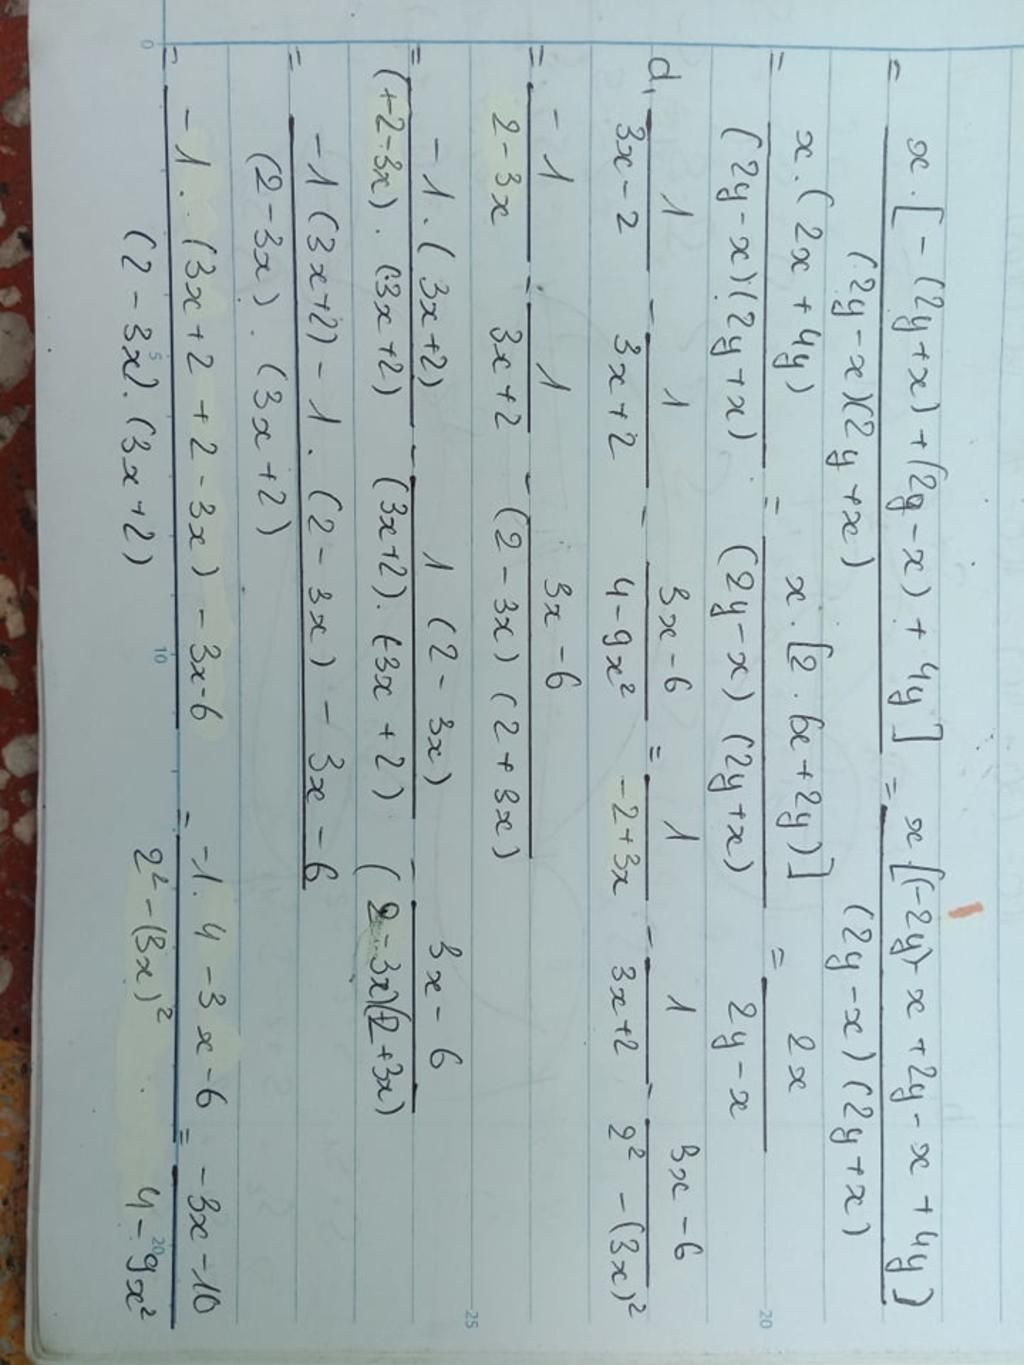 = x.[-(2y+x)+(2y-x)+4y] / (2y-x)(2y+x) = x.[(-2y)-x+2y-x+4y) / (2y-x)(2y+x)
= x.(2x+4y) / (2y-x)(2y+x) = x.[2.(x+2y)] / (2y-x)(2y+x) = 2x / 2y-x
d, 1 / 3x-2 - 1 / 3x+2 - 3x-6 / 4-9x² = 1 / -2+3x - 1 / 3x+2 - 3x-6 / 2²-(3x)²
= -1 / 2-3x - 1 / 3x+2 - 3x-6 / (2-3x)(2+3x)
= -1.(3x+2) / (+2-3x).(3x+2) - 1(2-3x) / (3x+2).(-3x+2) - 3x-6 / (2-3x)(2+3x)
= -1(3x+2)-1.(2-3x)-3x-6 / (2-3x).(3x+2)
= -1.(3x+2+2-3x)-3x-6 / (2-3x).(3x+2) = -1.4-3x-6 / 2²-(3x)² = -3x-10 / 4-9x²
0 5 10 20
25 20